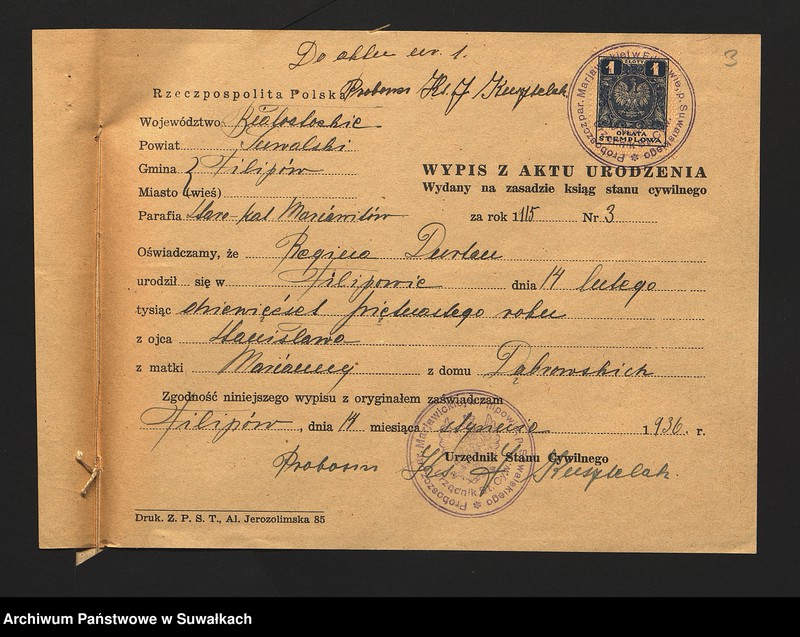 Do aktu nr. 1.
3
Rzeczpospolita Polska Proboszcz Ks. J Kusztelak
1 ZŁOTY 1
OPŁATA
STEMPLOWA
Województwo Białostockie
Powiat Suwalski
Gmina Filipów
Miasto (wieś)
WYPIS Z AKTU URODZENIA
Wydany na zasadzie ksiąg stanu cywilnego
Parafia Staro-kat Mariawitów za rok 1915 Nr. 3
Oświadczamy, że Regina
urodził się w Filipowie dnia 14 lutego
tysiąc dziewięćset piętnastego roku
z ojca Stanisława
z matki Marianny z domu Dąbrowskich
Zgodność niniejszego wypisu z oryginałem zaświadczam
Filipów, dnia 14 miesiąca stycznia 1936. r.
Urzędnik Stanu Cywilnego
Proboszcz Ks. J. Kusztelak.
Druk. Z. P. S. T., Al. Jerozolimska 85
Archiwum Państwowe w Suwałkach